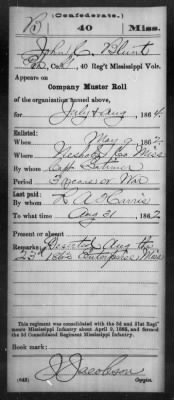 (Confederate.)
B 40 Miss.
John C. Blunt
Co. , 40 Reg't Mississippi Vols.
Appears on
Company Muster Roll
of the organization named above,
for July & Aug , 1864.
Enlisted:
When May 9 , 1862.
Where Neshoba Co Miss
By whom Capt
Period 3 years or War
Last paid:
By whom L A
To what time Aug 31 , 1862
Present or absent
Remarks: Deserted Aug the
23d 1862 Enterprise Miss
This regiment was consolidated with the 3d and 31st Regiments
Mississippi Infantry about April 9, 1865, and formed
the 3d Consolidated Regiment Mississippi Infantry.
Book mark:
J Jacobson
(642) Copyist.